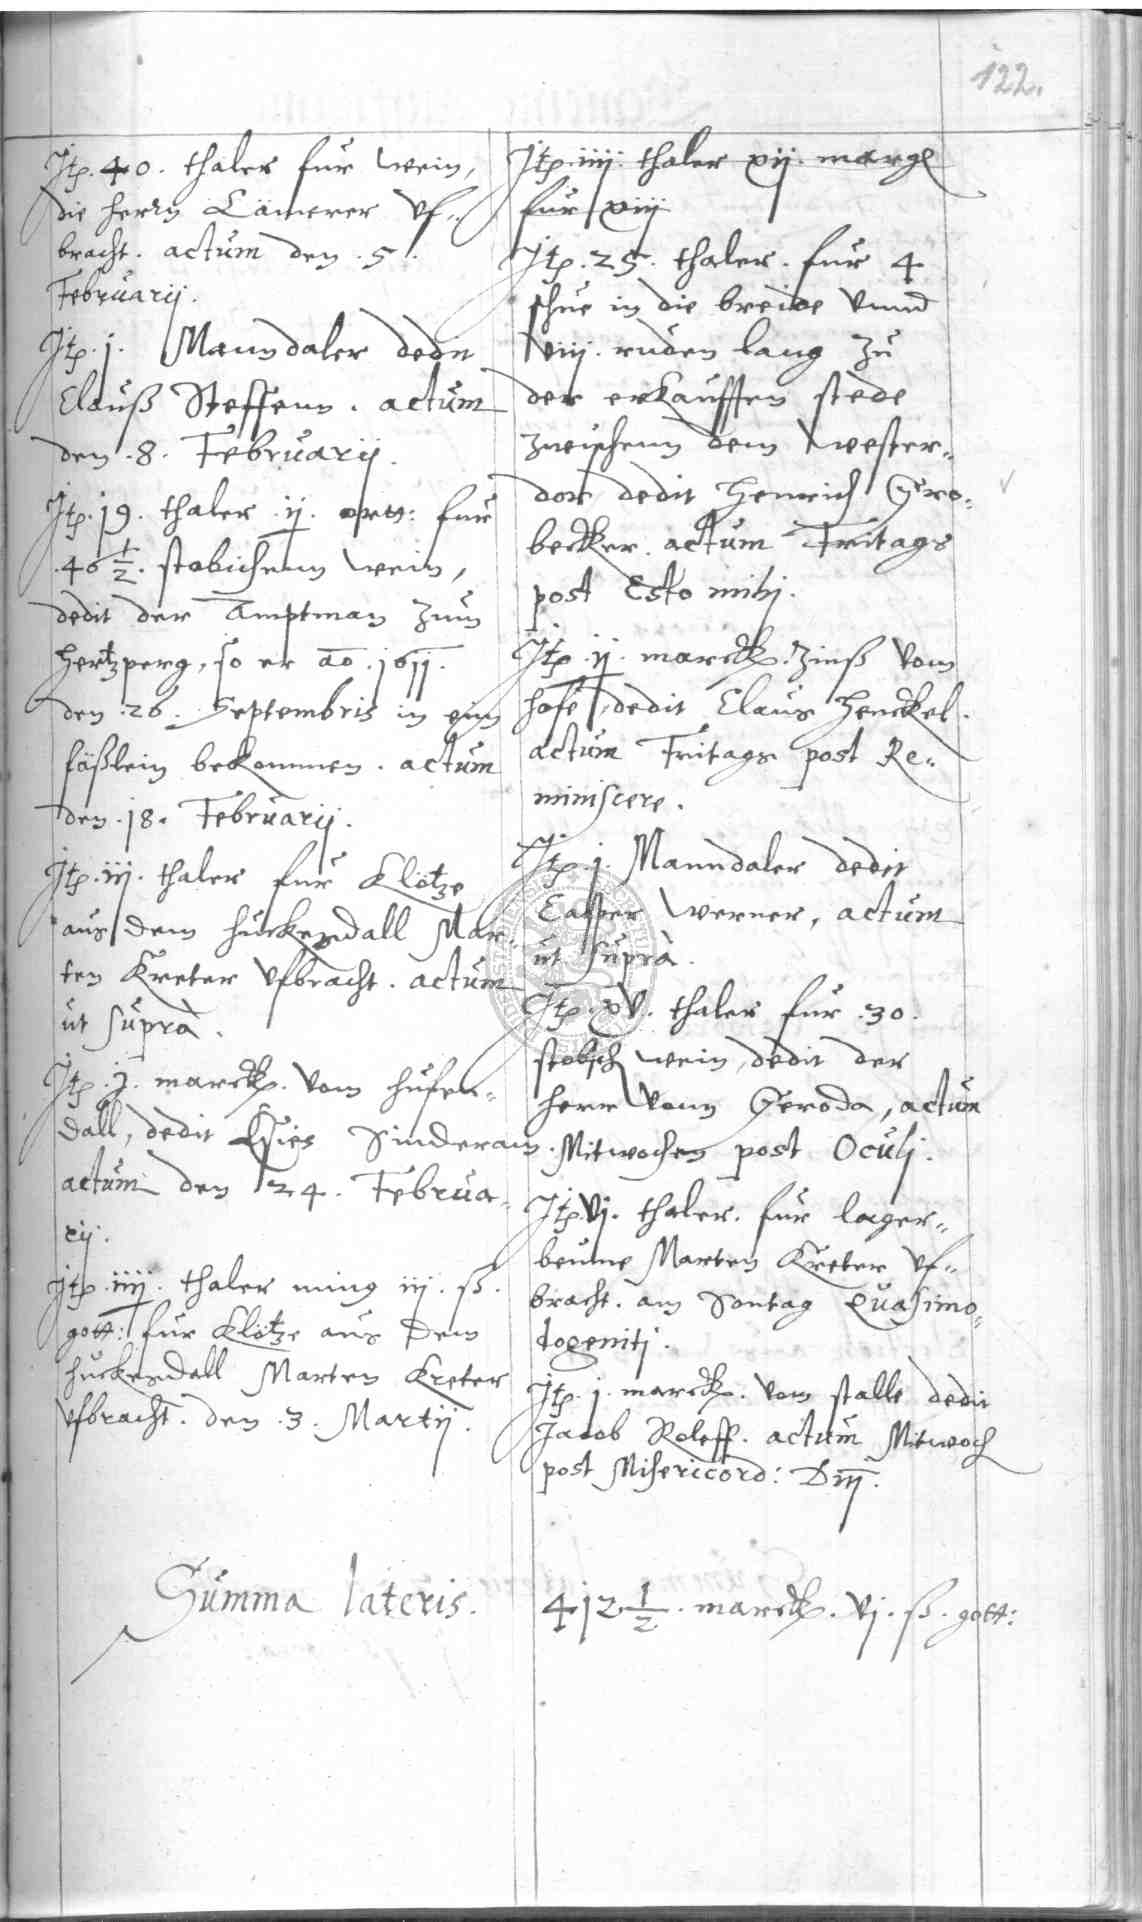 122.
Jtp. 40. thaler fur wein,
die herrn Cämerer vf=
bracht. actum den .5.
Februarij.
Jtp. j. Manndaler dedit
Clauß Steffenn. actum
den .8. Februarij.
Jtp. 19. thaler .ij. ortt: fur
.46 1/2. stobichenn wein,
dedit der Amptman zum
Hertzperg, so er ao. 1611.
den .26. Septembris in eym
fäßlein bekommen. actum
den .18. Februarij.
Jtp. iij. thaler fur Klötze
aus dem huckesdall Mar=
ten Kreter vfbracht. actum
ut suprà.
Jtp. j. marck. vom hufen=
dall, dedit Sinderam.
actum den 24. Februa=
rij.
Jtp. iiij. thaler iij. ß.
gott: fur Klötze aus dem
huckesdall Marten Kreter
vfbracht. den .3. Martij.
Jtp. iiij. thaler xij. margk
fur xiij
Jtp. 25. thaler. fur 4
schue in die breide vnnd
viij. ruden lang zu
der erkaufften stede
zwischenn dem wester=
dor, dedit Henrich Gro=
becker. actum Fritags
post Esto mihi.
Jtp. ij. marck. zinß vom
hofe, dedit Claus Henckel.
actum Fritags post Re=
miniscere.
Jtp. j. Manndaler dedit
Casper Werner, actum
ut suprà.
Jtp. xv. thaler fur .30.
stobich wein, dedit der
herr vonn Geroda, actum
Mitwochen post Oculi.
Jtp. vj. thaler. fur lager=
beume Marten Kreter vf=
bracht. am Sontag Quasimo=
dogeniti.
Jtp. j. marck. vom stalle dedit
Jacob Roleff. actum Mitwoch
post Misericord: Dnj.
Summa lateris. 412 1/2. marck. vj. ß. gott: